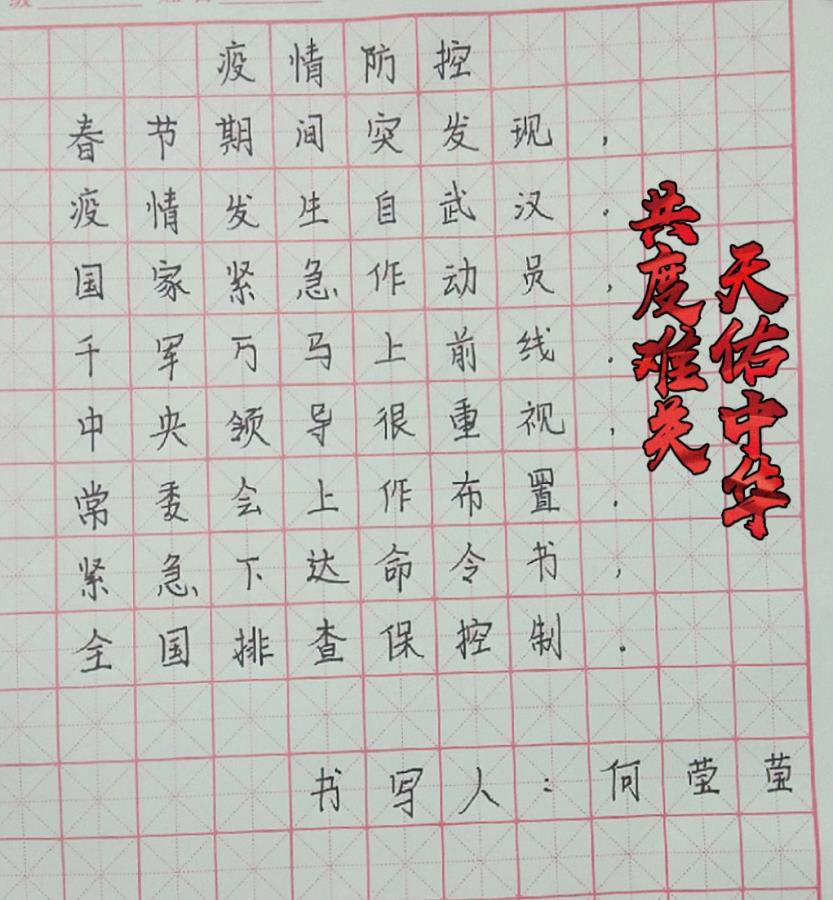 疫情防控
春节期间突发现,
疫情发生自武汉.
国家紧急作动员,
千军万马上前线.
中央领导很重视,
常委会上作布置.
紧急下达命令书,
全国排查保控制.
书写人:何莹莹
天佑中华
共度难关